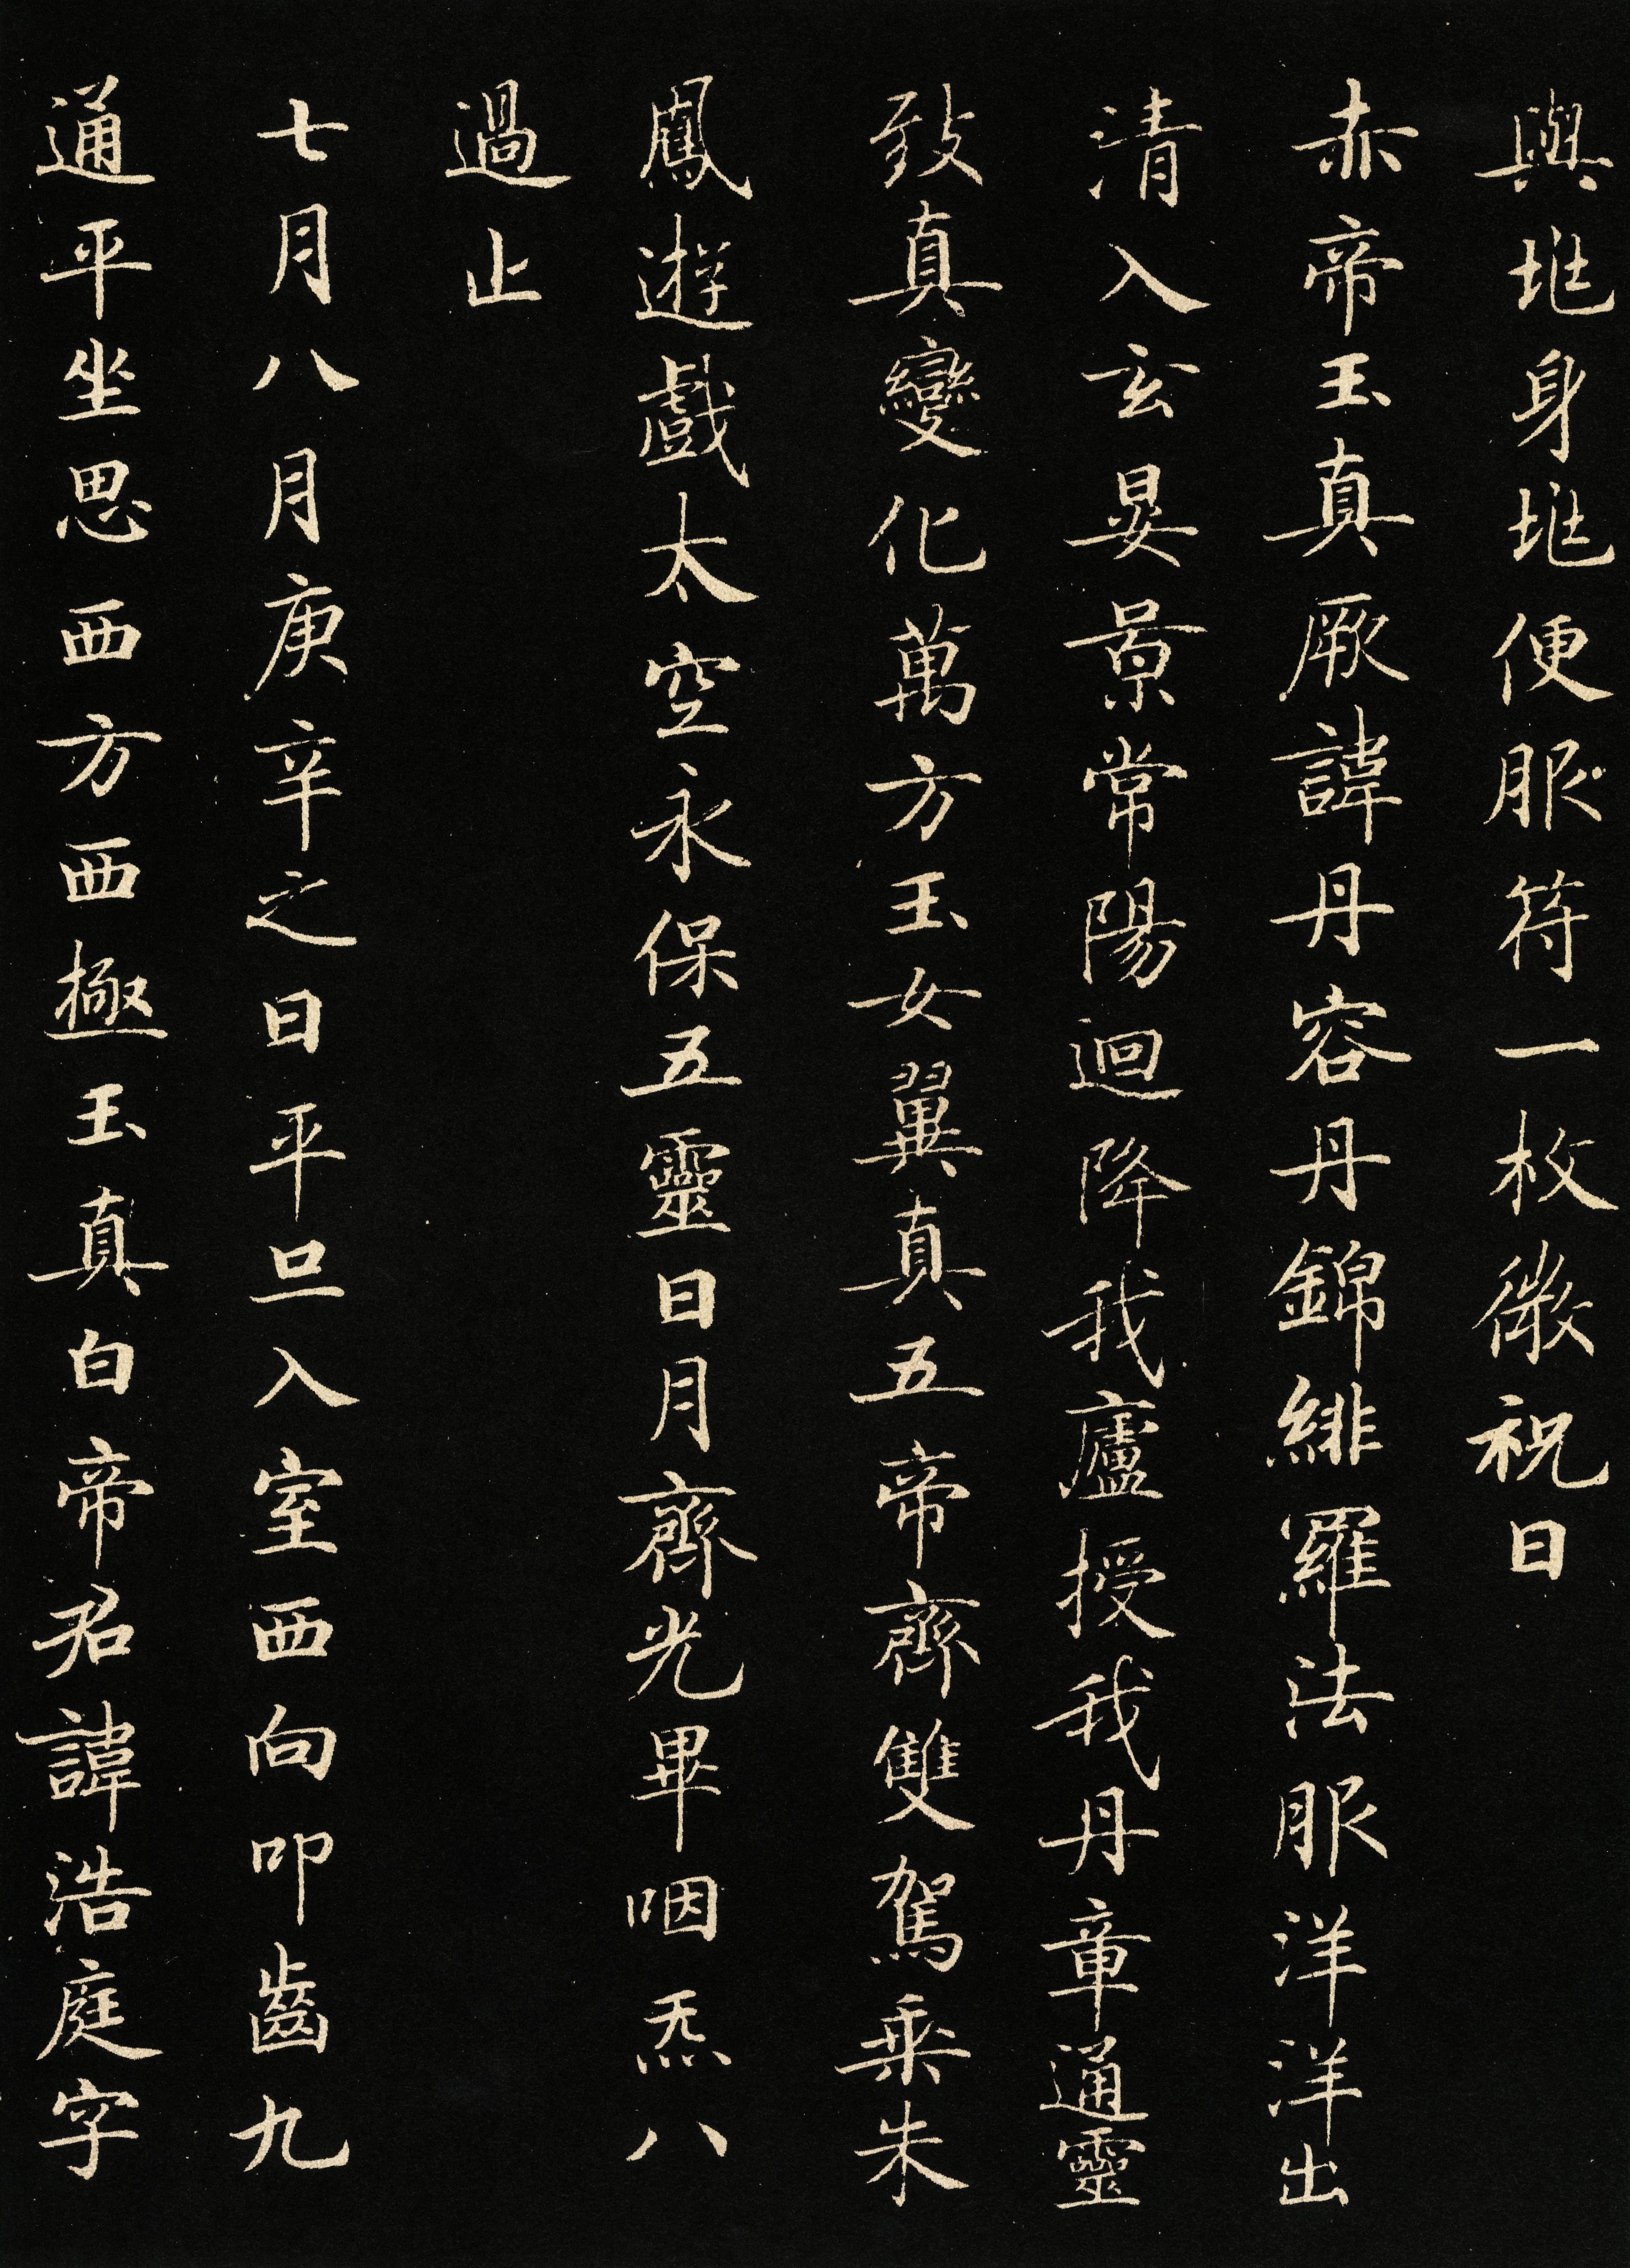 與地身地便服符一枚微祝曰
赤帝玉真厥諱丹容丹錦緋羅法服洋洋出
清入玄晏景常陽迴降我廬授我丹章通靈
致真變化萬方玉女翼真五帝齊雙駕乘朱
鳳遊戲太空永保五靈日月齊光畢咽炁八
過止
七月八月庚辛之日平旦入室西向叩齒九
通平坐思西方西極玉真白帝君諱浩庭字